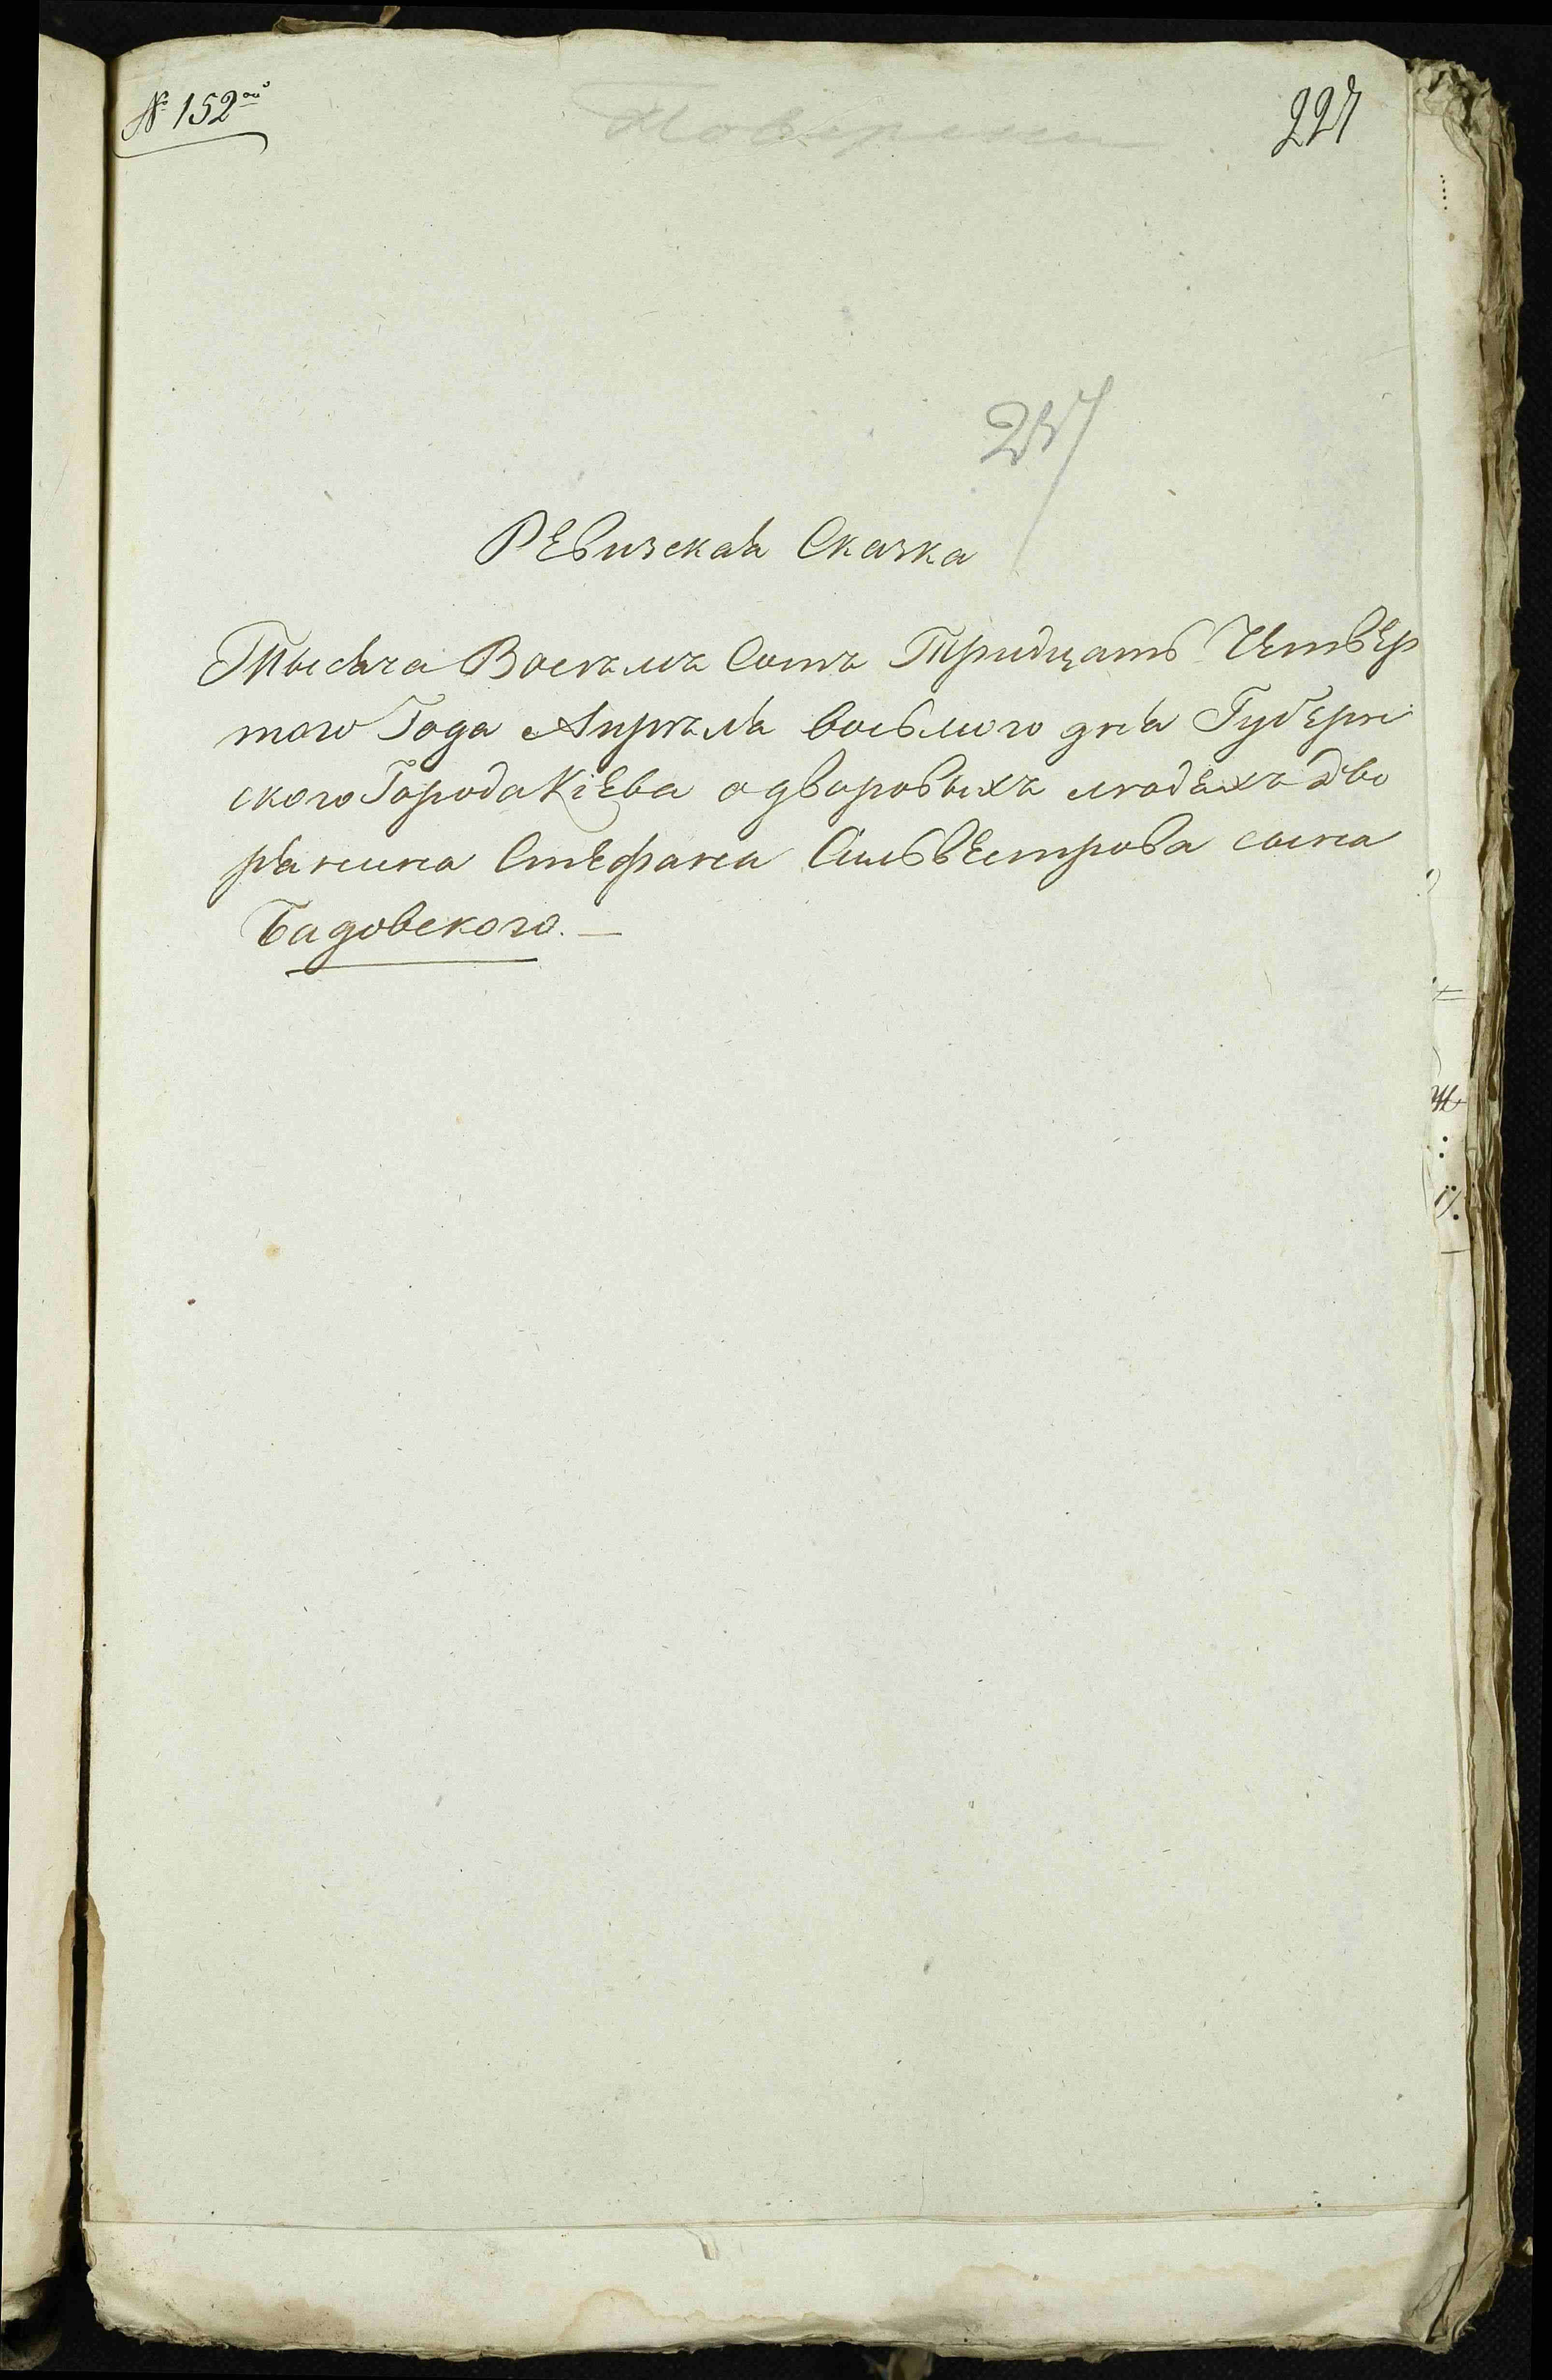 № 152ой
227
Ревизская Сказка
Тысяча Восемъ Сотъ Тридцать Четвер
того Года Апреля восьмого дня Губерн
ского Города Кіева о дворовыхъ людяхъ дво
рянина Стефана Сильвестрова сына
Бадовского. —